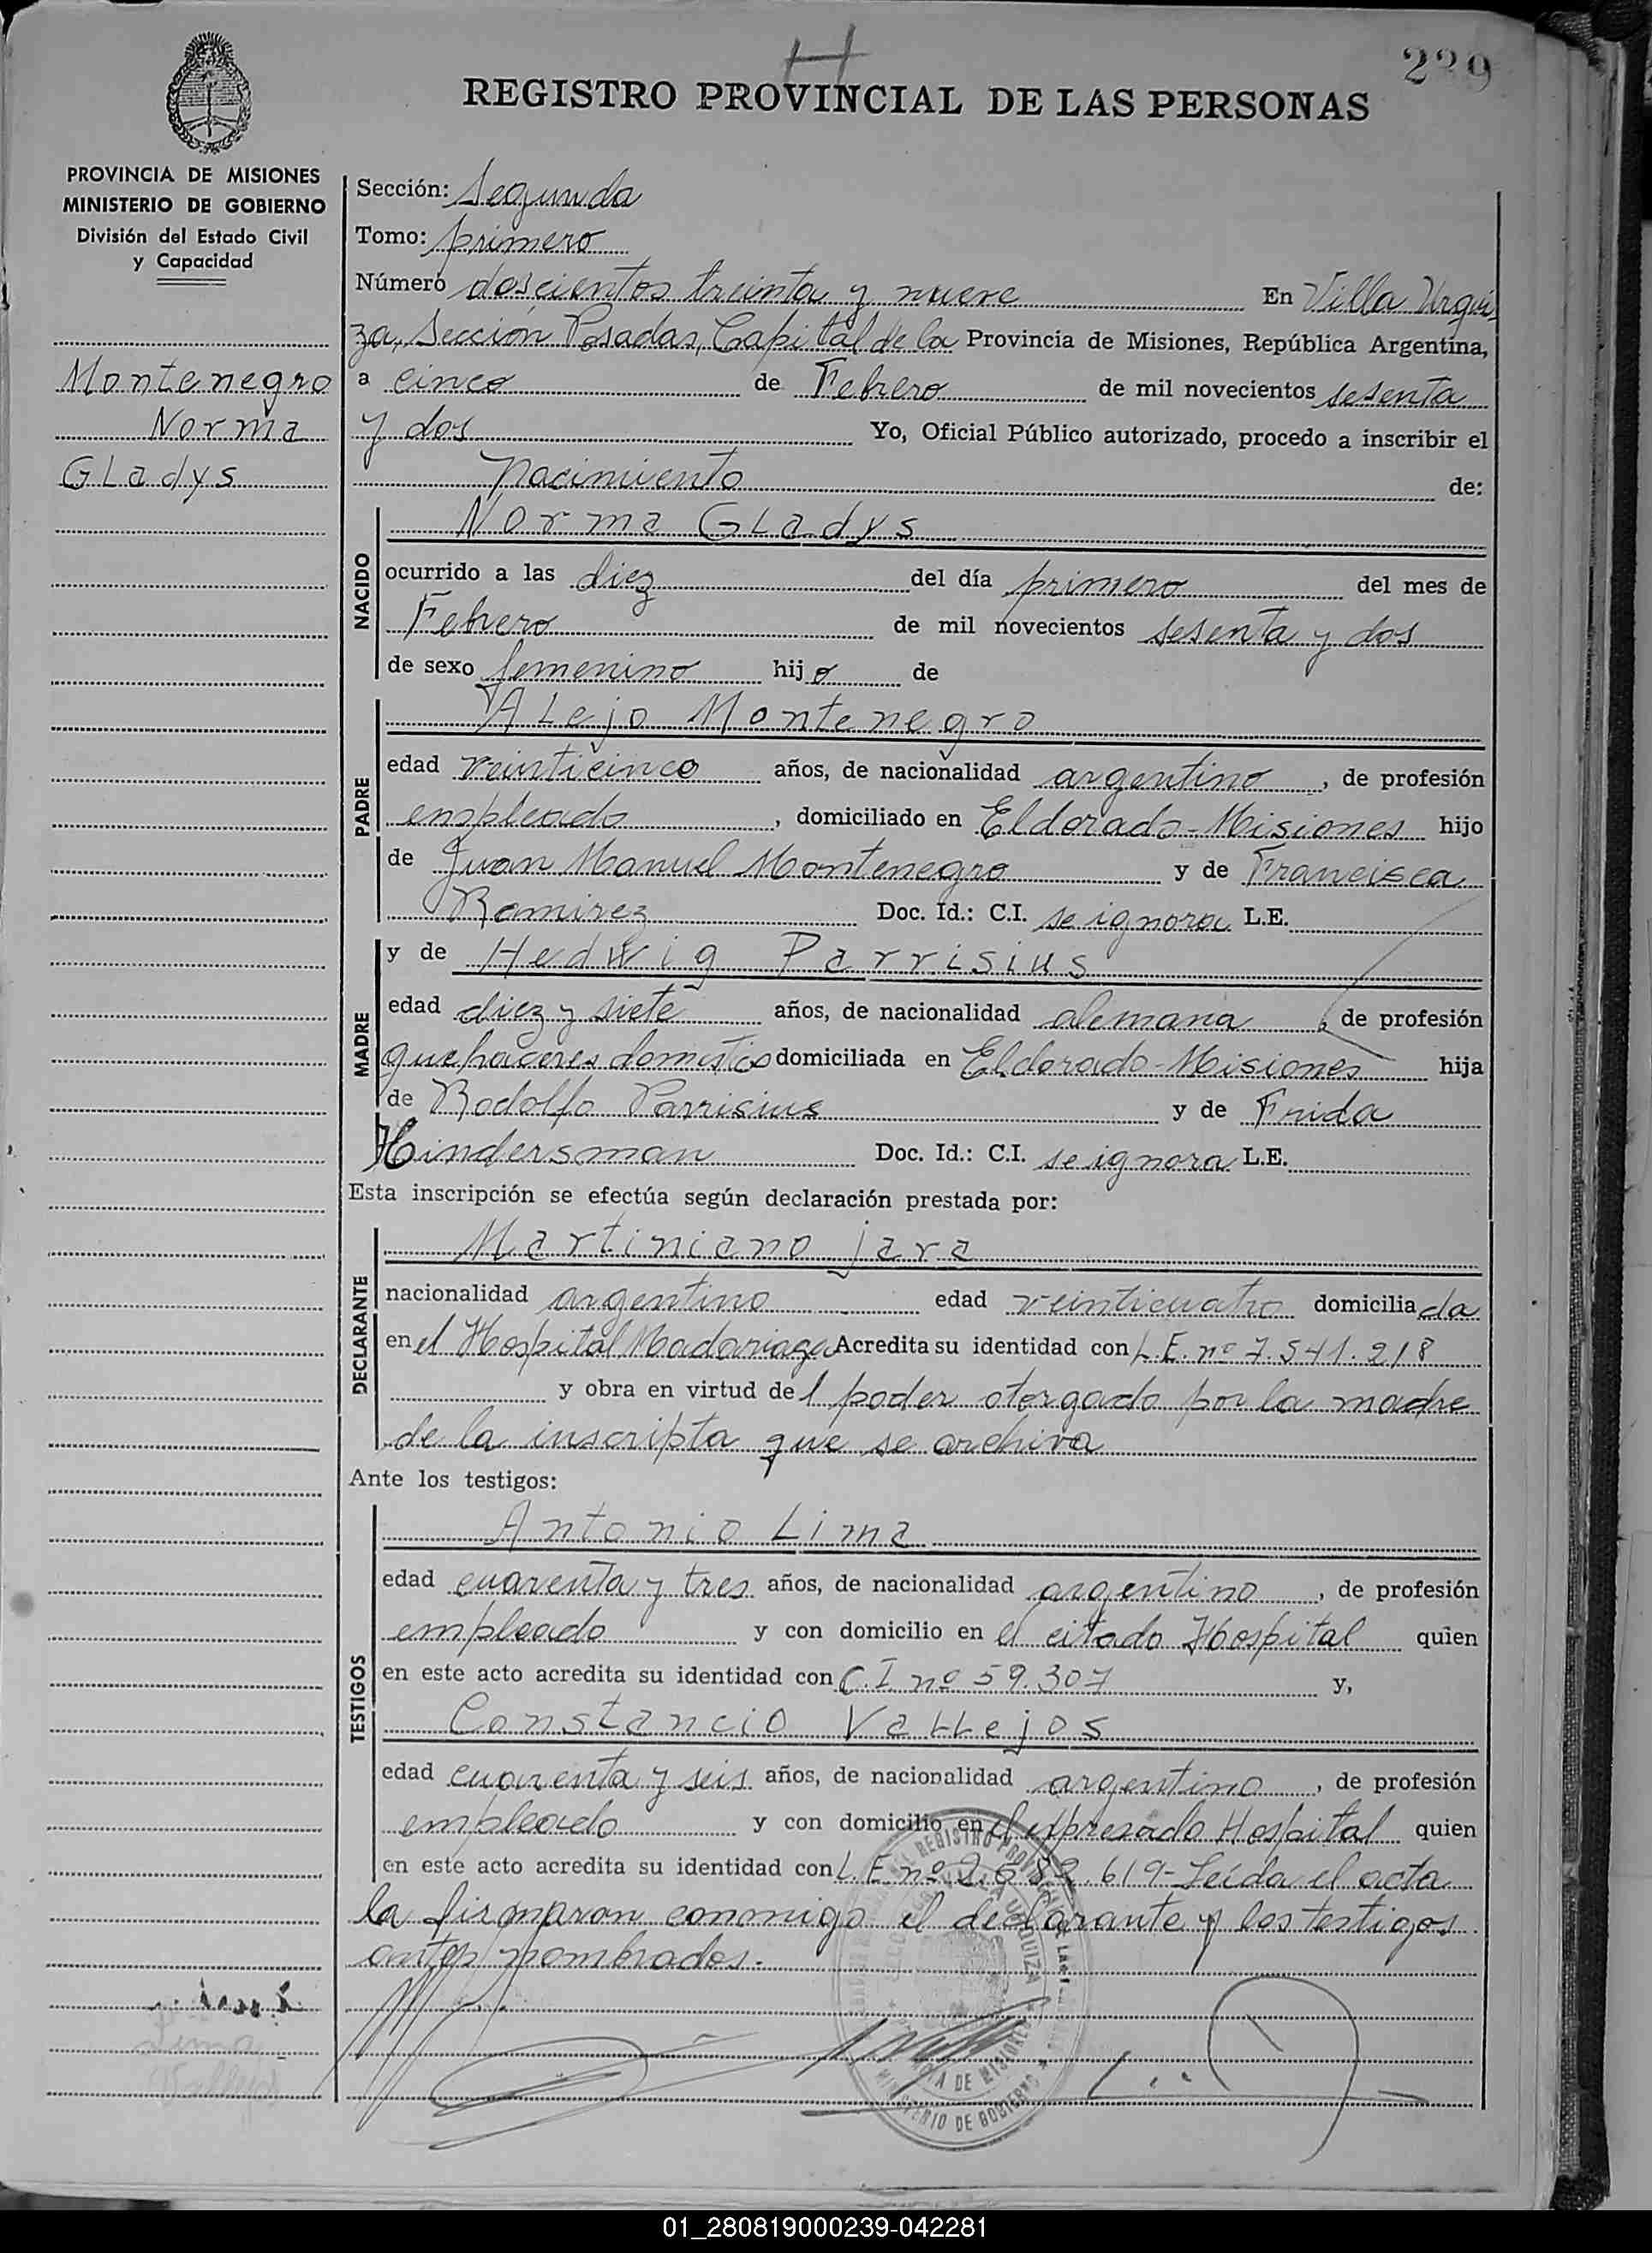 239
REGISTRO PROVINCIAL DE LAS PERSONAS
PROVINCIA DE MISIONES
MINISTERIO DE GOBIERNO
División del Estado Civil
y Capacidad
Montenegro
Norma
Gladys
Sección: Segunda
Tomo: primero
Número doscientos treinta y nueve En Villa Urqui-
za, Sección Posadas, Capital de la Provincia de Misiones, República Argentina,
a cinco de Febrero de mil novecientos sesenta
y dos Yo, Oficial Público autorizado, procedo a inscribir el
nacimiento de:
NACIDO
Norma Gladys
ocurrido a las diez del día primero del mes de
Febrero de mil novecientos sesenta y dos
de sexo femenino hijo de
PADRE
Alejo Montenegro
edad veinticinco años, de nacionalidad argentino, de profesión
empleado, domiciliado en Eldorado-Misiones hijo
de Juan Manuel Montenegro y de Francisca
Ramirez Doc. Id.: C.I. se ignora L.E.
MADRE
y de Hedwig Parrisius
edad diez y siete años, de nacionalidad alemana, de profesión
quehaceres domestico domiciliada en Eldorado-Misiones hija
de Rodolfo Parrisius y de Frida
Hindersman Doc. Id.: C.I. se ignora L.E.
Esta inscripción se efectúa según declaración prestada por:
DECLARANTE
Martiniano Jara
nacionalidad argentino edad veinticuatro domiciliada
en el Hospital Madariaga Acredita su identidad con L.E. nº 7.541.218
y obra en virtud del poder otorgado por la madre
de la inscripta que se archiva
Ante los testigos:
TESTIGOS
Antonio Lima
edad cuarenta y tres años, de nacionalidad argentino, de profesión
empleado y con domicilio en el citado Hospital quien
en este acto acredita su identidad con C.I. nº 59.307 y,
Constancio Vallejos
edad cuarenta y seis años, de nacionalidad argentino, de profesión
empleado y con domicilio en el expresado Hospital quien
en este acto acredita su identidad con L.E. nº 2.682.619- Leída el acta
la firmaron conmigo el declarante y los testigos
antes nombrados.
Lima
Vallejos
MINISTERIO DE GOBIERNO
01_280819000239-042281